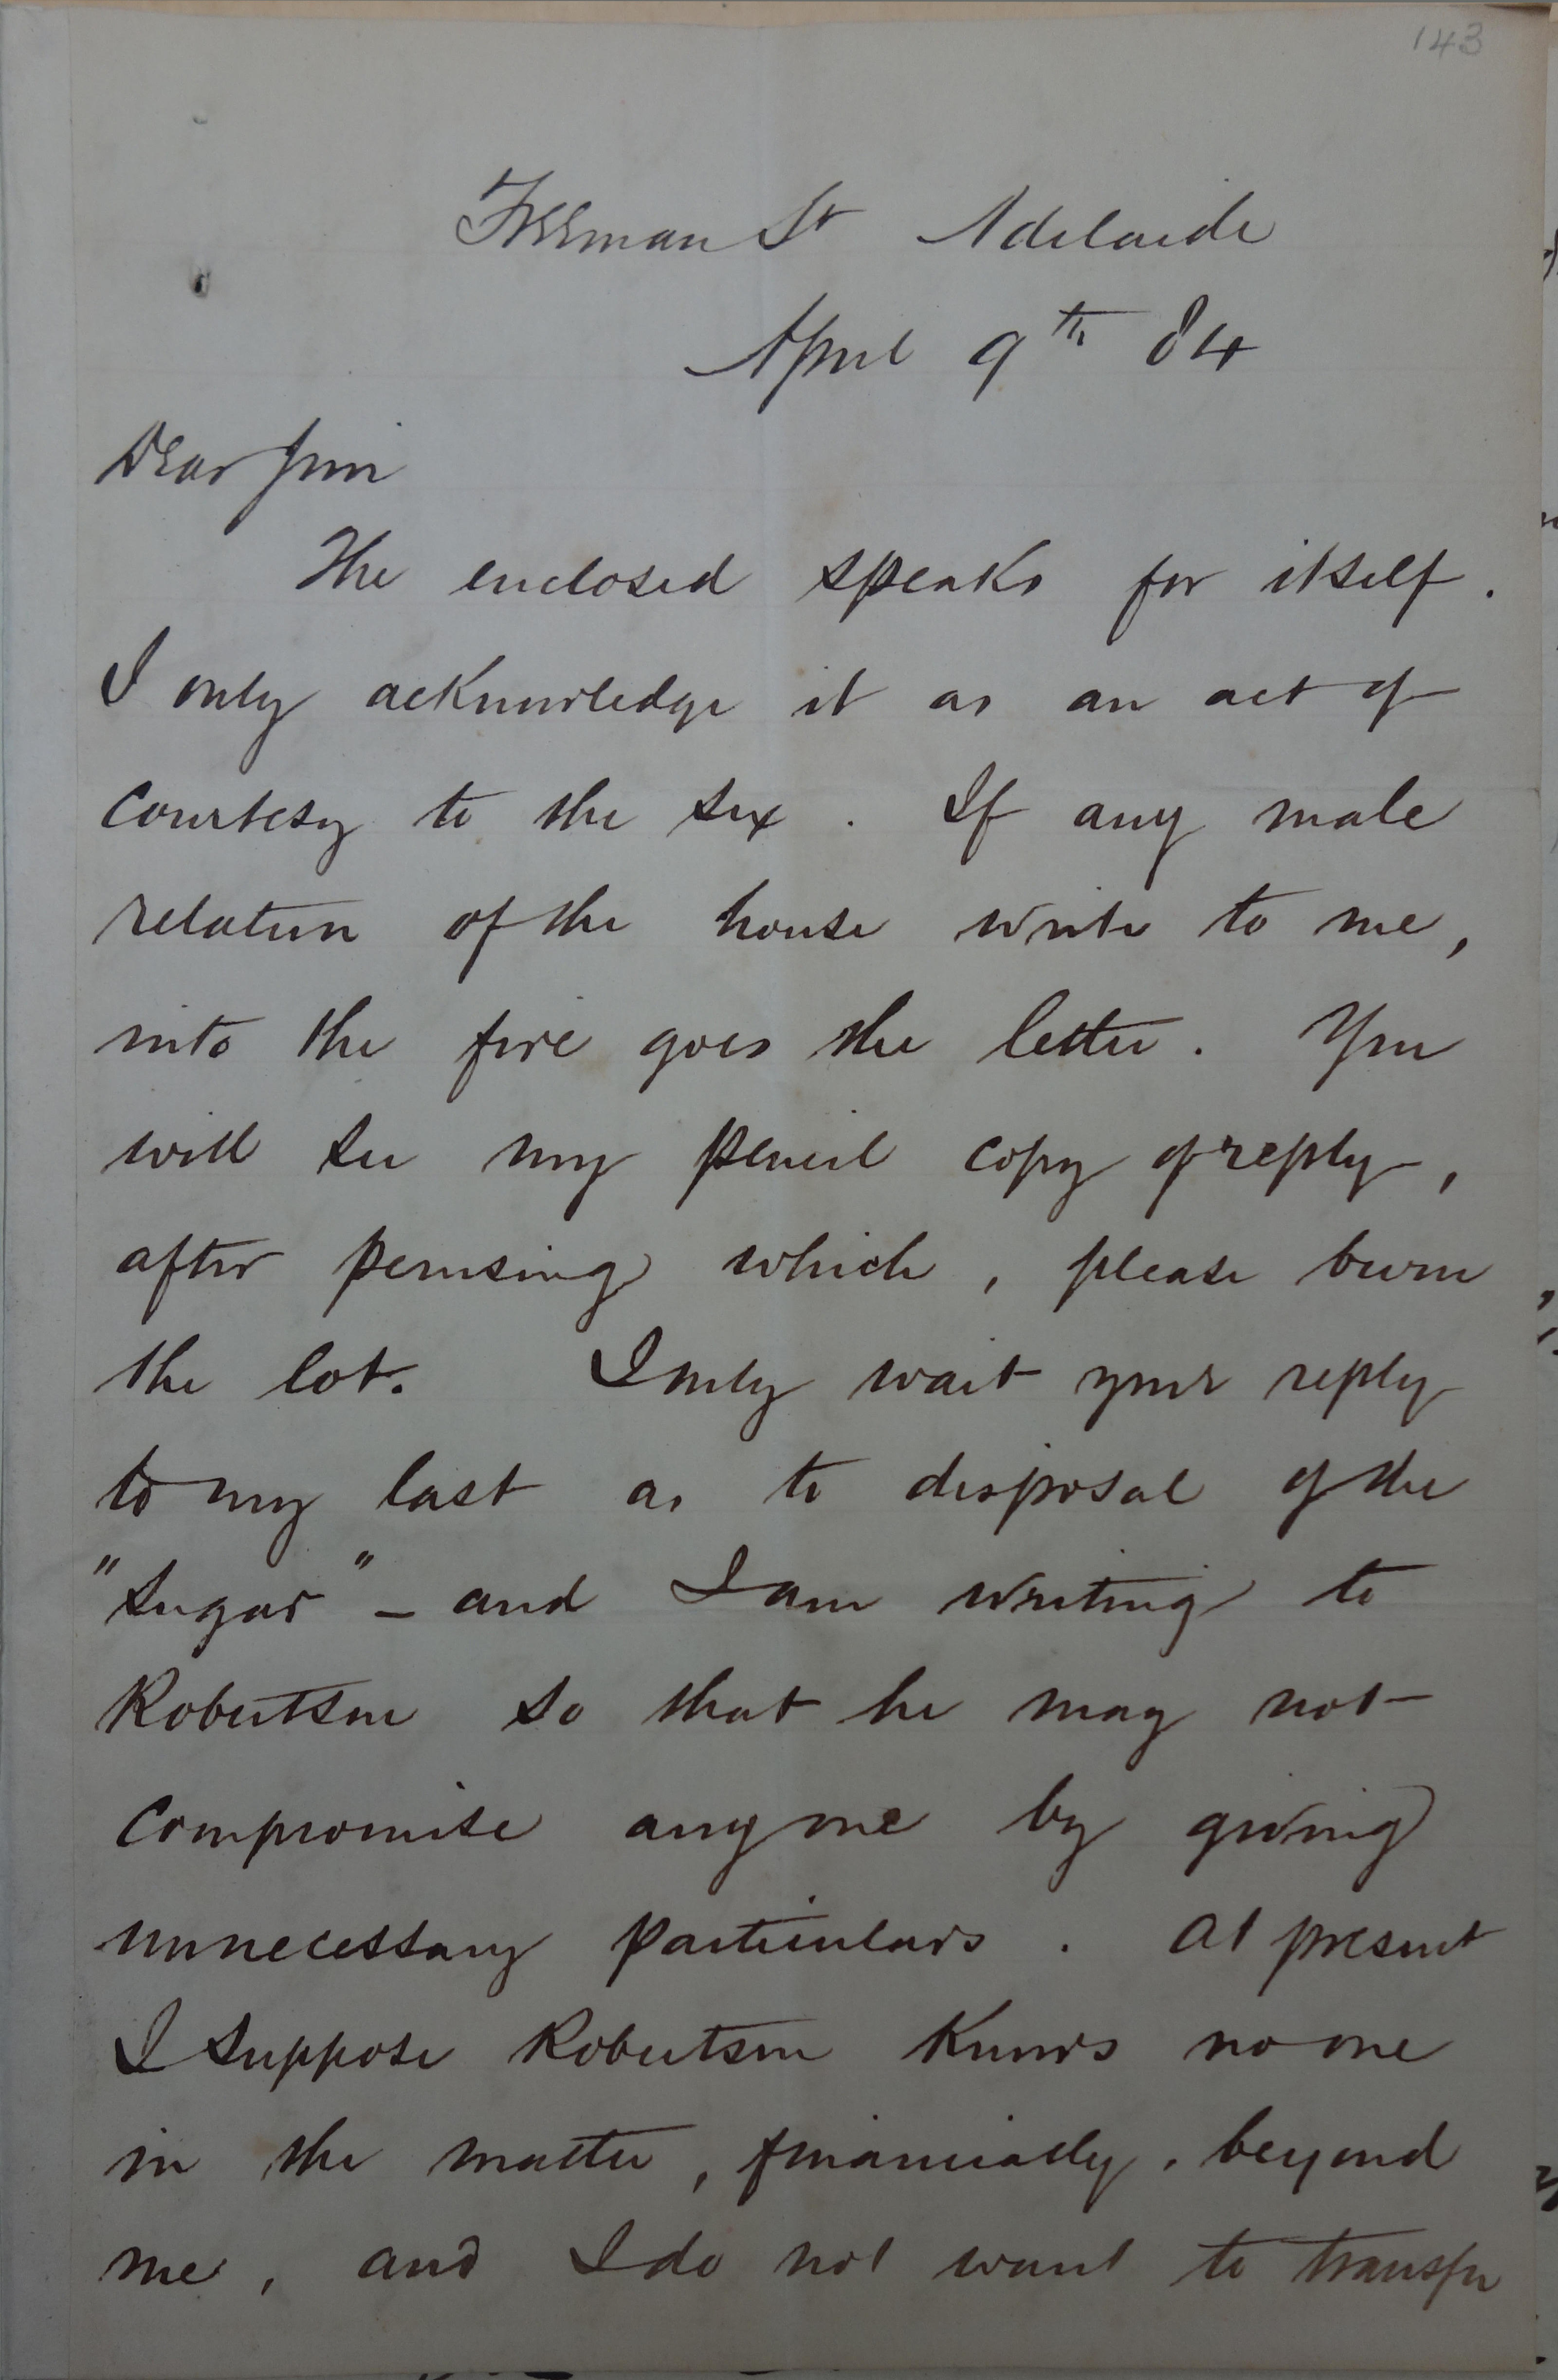 143
Freeman St Adelaide
April 9th 84
Dear Jim
The enclosed speaks for itself.
I only acknowledge it as an act of
courtesy to the sex. If any male
relation of the house write to me,
into the fire goes the letter. You
will see my pencil copy of reply,
after perusing which, please burn
the lot. I only wait your reply
to my last as to disposal of the
"Sugar" - and I am writing to
Robertson so that he may not
compromise anyone by giving
unnecessary particulars. At present
I suppose Robertson knows no one
in the matter, financially, beyond
me, and I do not want to transfer